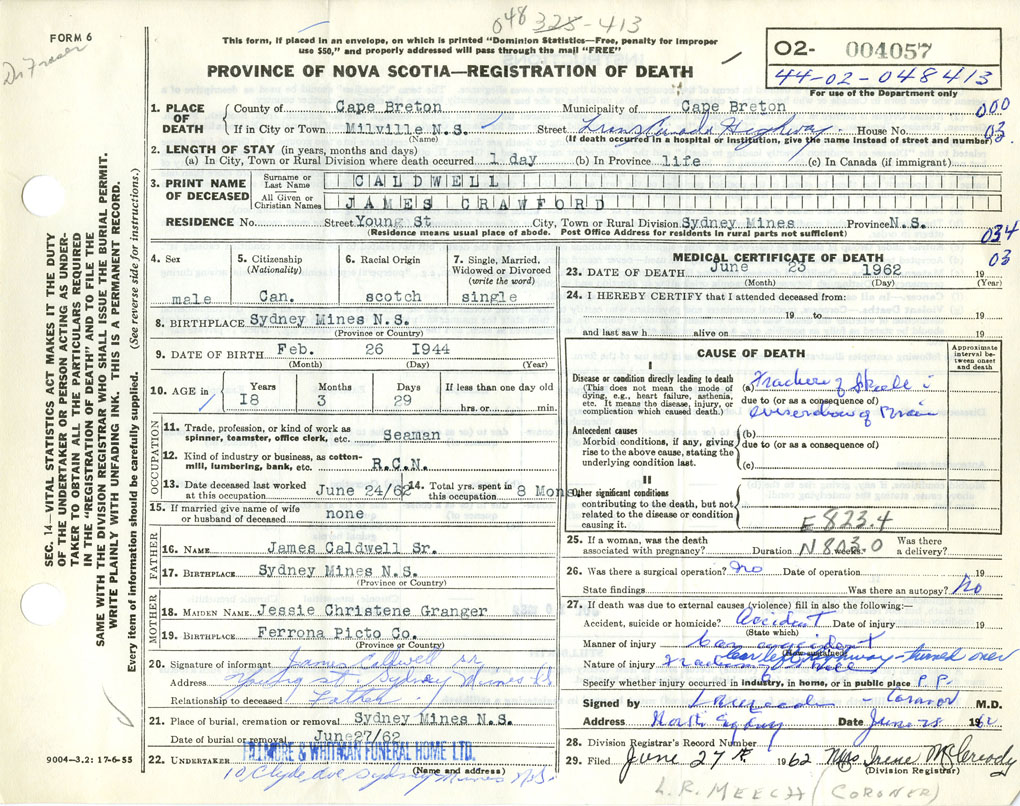 048 328-413
FORM 6
Dr Fraser
This form, if placed in an envelope, on which is printed "Dominion Statistics—Free, penalty for improper
use $50," and properly addressed will pass through the mail "FREE"
PROVINCE OF NOVA SCOTIA—REGISTRATION OF DEATH
02- 004057
44-02-048413
For use of the Department only
1. PLACE OF DEATH
County of Cape Breton Municipality of Cape Breton 000
If in City or Town Milville N.S. Street Trans Canada Highway House No. 03
(Name) (If death occurred in a hospital or institution, give the name instead of street and number)
2. LENGTH OF STAY (in years, months and days)
(a) In City, Town or Rural Division where death occurred 1 day (b) In Province life (c) In Canada (if immigrant)
3. PRINT NAME OF DECEASED
Surname or Last Name CALDWELL
All Given or Christian Names JAMES CRAWFORD
RESIDENCE No. Street Young St City, Town or Rural Division Sydney Mines Province N.S.
(Residence means usual place of abode. Post Office Address for residents in rural parts not sufficient)
034
03
4. Sex
male
5. Citizenship (Nationality)
Can.
6. Racial Origin
scotch
7. Single, Married, Widowed or Divorced (write the word)
single
8. BIRTHPLACE Sydney Mines N.S.
(Province or Country)
9. DATE OF BIRTH Feb. 26 1944
(Month) (Day) (Year)
10. AGE in Years Months Days If less than one day old
18 3 29 hrs. or min.
OCCUPATION
11. Trade, profession, or kind of work as spinner, teamster, office clerk, etc. Seaman
12. Kind of industry or business, as cotton-mill, lumbering, bank, etc. R.C.N.
13. Date deceased last worked at this occupation June 24/62
14. Total yrs. spent in this occupation 8 Mons
15. If married give name of wife or husband of deceased none
FATHER
16. NAME James Caldwell Sr.
17. BIRTHPLACE Sydney Mines N.S.
(Province or Country)
MOTHER
18. MAIDEN NAME Jessie Christene Granger
19. BIRTHPLACE Ferrona Picto Co.
(Province or Country)
20. Signature of informant James Caldwell sr
Address Young st. Sydney Mines NS
Relationship to deceased Father
21. Place of burial, cremation or removal Sydney Mines N.S.
Date of burial or removal June27/62
22. UNDERTAKER & WHITMAN FUNERAL HOME LTD.
(Name and address)
10 Clyde Ave Sydney Mines N.S.
MEDICAL CERTIFICATE OF DEATH
23. DATE OF DEATH June 23 1962 19
(Month) (Day) (Year)
24. I HEREBY CERTIFY that I attended deceased from:
19 to 19
and last saw h alive on 19
CAUSE OF DEATH
Approximate interval between onset and death
I
Disease or condition directly leading to death
(This does not mean the mode of dying, e.g., heart failure, asthenia, etc. It means the disease, injury, or complication which caused death.)
(a) Fracture of Skull
due to (or as a consequence of)
of Brain
Antecedent causes
Morbid conditions, if any, giving rise to the above cause, stating the underlying condition last.
(b)
due to (or as a consequence of)
(c)
II
Other significant conditions
contributing to the death, but not related to the disease or condition causing it.
E823.4
25. If a woman, was the death associated with pregnancy? Duration weeks. Was there a delivery?
N803.0
26. Was there a surgical operation? No Date of operation 19
State findings Was there an autopsy? No
27. If death was due to external causes (violence) fill in also the following:—
Accident, suicide or homicide? Accident Date of injury 19
(State which)
Manner of injury Car accident
Car left highway - turned over
Nature of injury Fracture of skull
Specify whether injury occurred in industry, in home, or in public place P.P.
Signed by L R Meech - Coroner M.D.
Address North Sydney Date June 25 1962
28. Division Registrar's Record Number 6
29. Filed June 27th. 1962 Mrs Irene McCready
(Division Registrar)
L.R. MEECH (CORONER)
SEC. 14—VITAL STATISTICS ACT MAKES IT THE DUTY
OF THE UNDERTAKER OR PERSON ACTING AS UNDER-
TAKER TO OBTAIN ALL THE PARTICULARS REQUIRED
IN THE "REGISTRATION OF DEATH" AND TO FILE THE
SAME WITH THE DIVISION REGISTRAR WHO SHALL ISSUE THE BURIAL PERMIT.
WRITE PLAINLY WITH UNFADING INK. THIS IS A PERMANENT RECORD.
Every item of information should be carefully supplied. (See reverse side for instructions.)
9004—3.2: 17-6-55